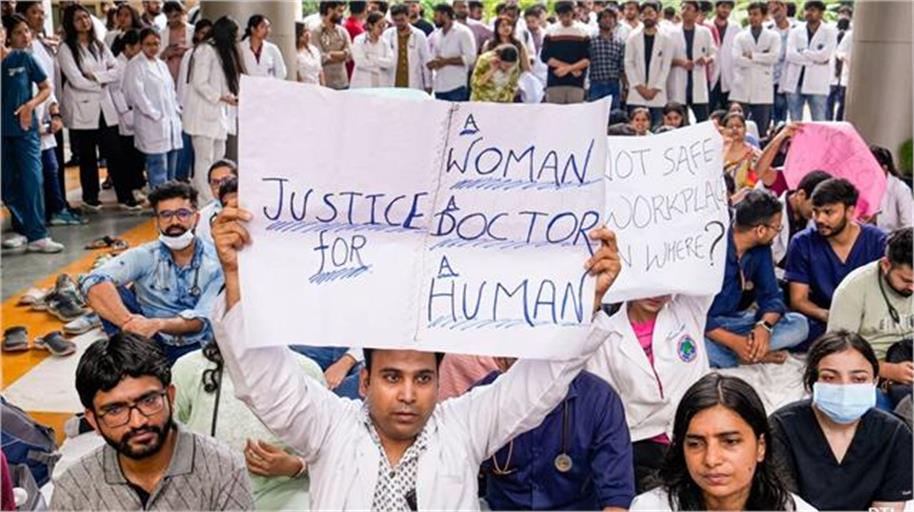 JUSTICE
for
A
WOMAN
A
DOCTOR
A
HUMAN
NOT SAFE
WORKPLACE
N WHERE?